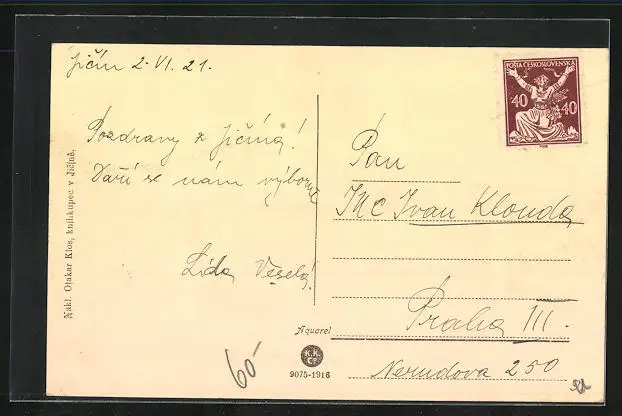 Jičín 2. VI. 21.
Pozdravy z Jičína!
Daří se nám výborně
Lída Veselá!
Nakl. Otakar Klos, knihkupec v Jičíně.
POŠTA ČESKOSLOVENSKÁ
40 40
Pan
JUC Ivan Klouda
Praha III.
Nerudova 250
Aquarel
K.K.
9075-1916
60-